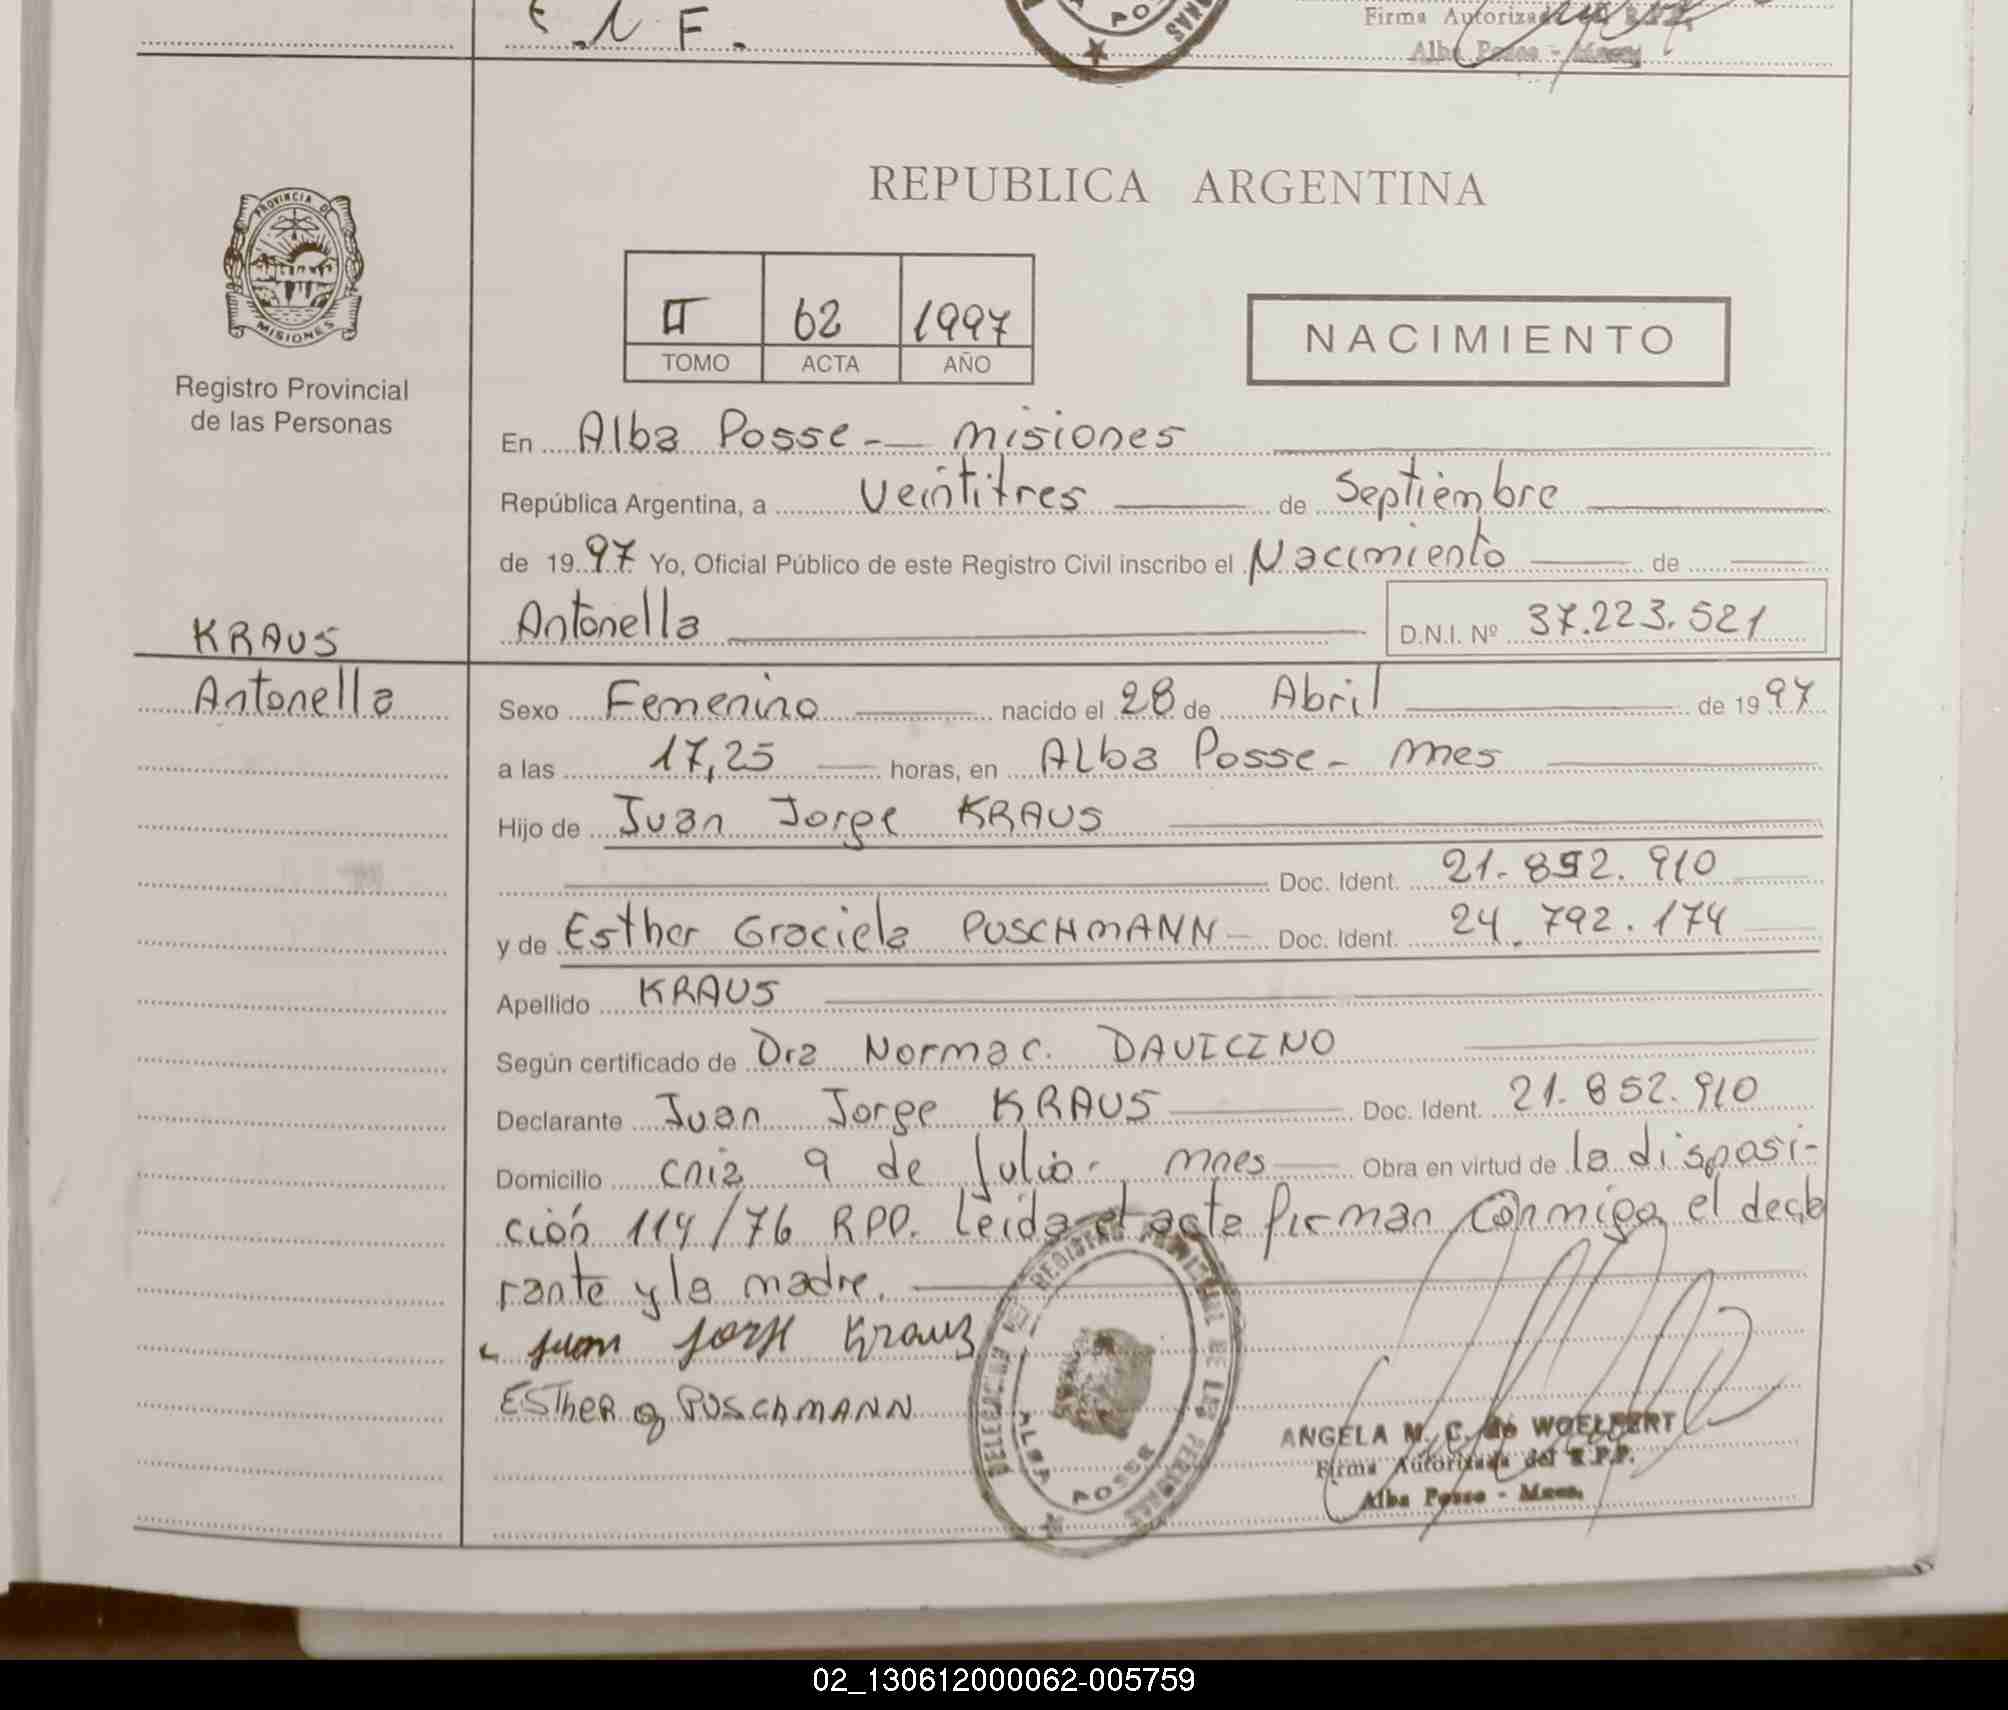 E.N F.
Firma Autorizada R.P.P.
Alba Posse - Mnes.
REPUBLICA ARGENTINA
PROVINCIA DE
MISIONES
II 62 1997
TOMO ACTA AÑO
NACIMIENTO
Registro Provincial
de las Personas
En Alba Posse - misiones
República Argentina, a Veintitres de Septiembre
de 1997 Yo, Oficial Público de este Registro Civil inscribo el Nacimiento de
Antonella D.N.I. Nº 37.223.521
KRAUS
Antonella
Sexo Femenino nacido el 28 de Abril de 1997
a las 17,25 horas, en Alba Posse - mnes
Hijo de Juan Jorge KRAUS
Doc. Ident. 21.852.910
y de Esther Graciela PUSCHMANN Doc. Ident. 24.792.174
Apellido KRAUS
Según certificado de Dra Norma C. DAVICINO
Declarante Juan Jorge KRAUS Doc. Ident. 21.852.910
Domicilio cnia 9 de Julio - mnes Obra en virtud de la disposi-
ción 114/76 RPP. Leida el acta firman conmigo el decla
rante y la madre.
Juan Jorge Kraus
ESTHER G PUSCHMANN
DELEGACION DEL REGISTRO PROVINCIAL DE LAS PERSONAS
ALBA POSSE
ANGELA M. C. de WOELFERT
Firma Autorizada del R.P.P.
Alba Posse - Mnes.
02_130612000062-005759